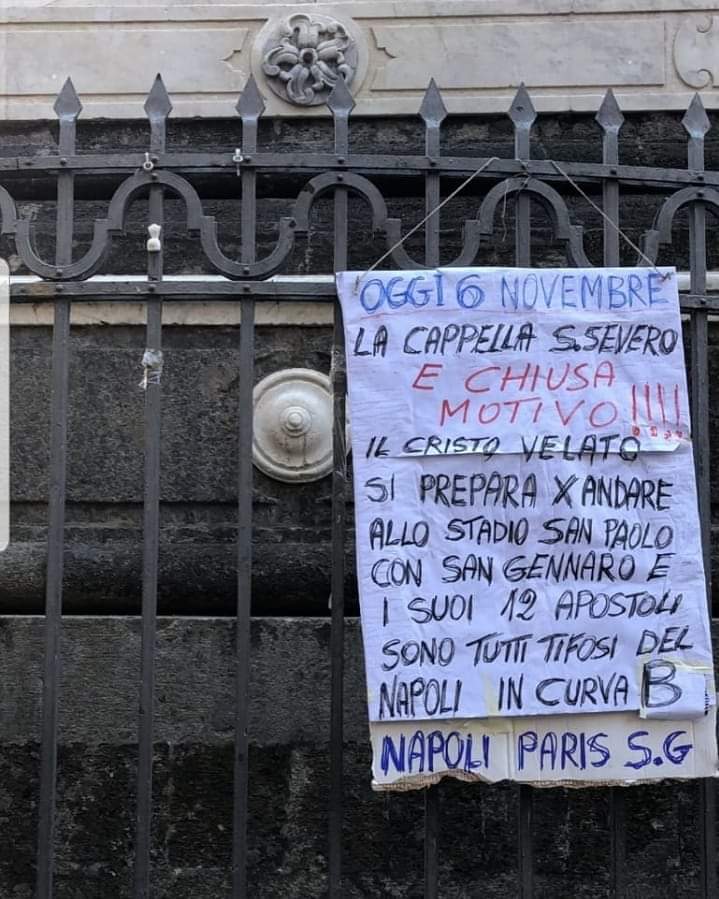 OGGÌ 6 NOVEMBRE
LA CAPPELLA S. SEVERO
E CHIUSA
MOTIVO !!!!
IL CRISTO VELATO
SI PREPARA X ANDARE
ALLO STADIO SAN PAOLO
CON SAN GENNARO E
I SUOI 12 APOSTOLI
SONO TUTTI TIFOSI DEL
NAPOLI IN CURVA B
NAPOLI PARIS S.G